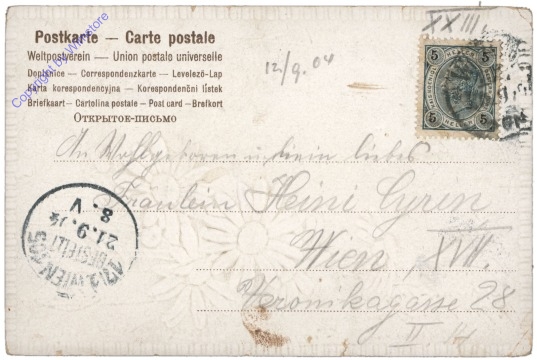 Postkarte — Carte postale
Weltpostverein — Union postale universelle
Dopisnice — Correspondenzkarte — Levelező-Lap
Karta korespondencyjna — Korespondenční lístek
Briefkaart — Cartolina postale — Post card — Brefkort
Открытое письмо
Copyright by Winstore
XXIII
12/9. 04
5 5
5 5
An Wohlgeboren
Fräulein Heini Cyren
Wien XVII.
Veronikagasse 28
II 14
17/2 WIEN 105
BESTELLT
21.9.04
8.V